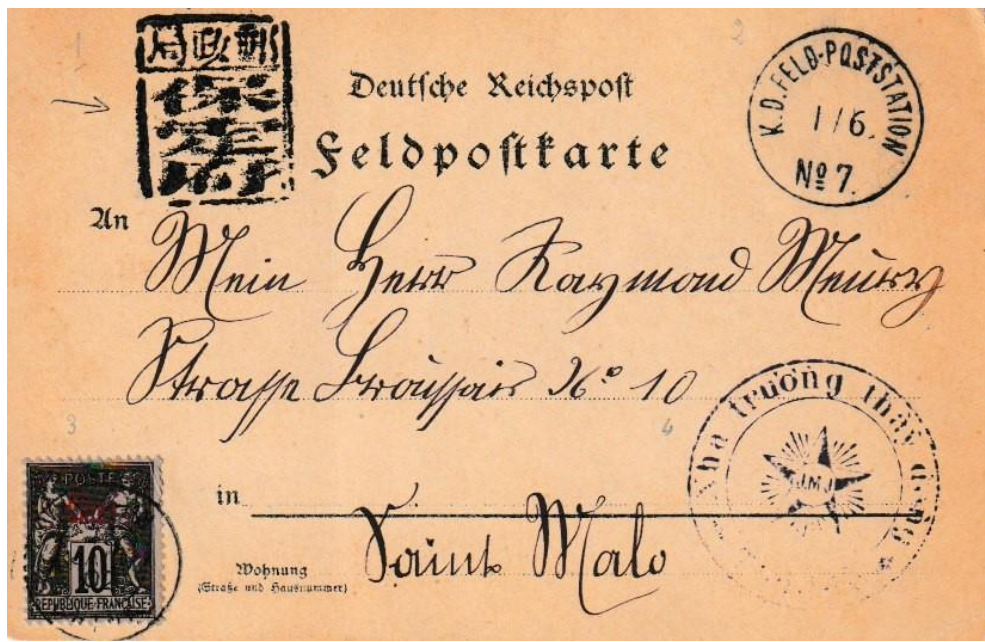 1
2
郵政局
Deutsche Reichspost
Feldpostkarte
K.D. FELD-POSTSTATION
1/6.
No 7.
An
Mein Herr Raymond Meury
Strasse Broussais No 10
3
4
Nha trường thầy dòng
J.M.J
in
Saint Malo
Wohnung
(Straße und Hausnummer)
POSTE
10
REPUBLIQUE FRANÇAISE